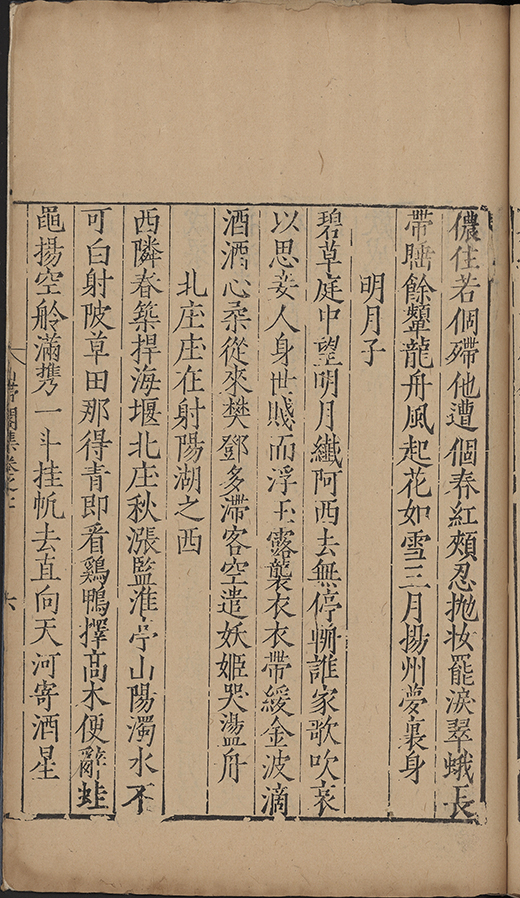 儂住若個殢他遭個春紅頰忍抛妆罷淚翠蛾長
帶睡餘顰龍舟風起花如雪三月揚州夢裏身
明月子
碧草庭中望明月纖阿西去無停轍誰家歌吹哀
以思妾人身世賤而浮玉露襲衣衣帶緩金波滴
酒酒心柔從來樊鄧多滯客空遣妖姬哭盪舟
北庄庄在射陽湖之西
西隣春築捍海堰北庄秋漲監淮亭山陽濁水不
可白射陂草田那得青即看鷄鴨擇高木便辭蛙
黽揚空舲滿携一斗挂帆去直向天河寄酒星
集卷之
六